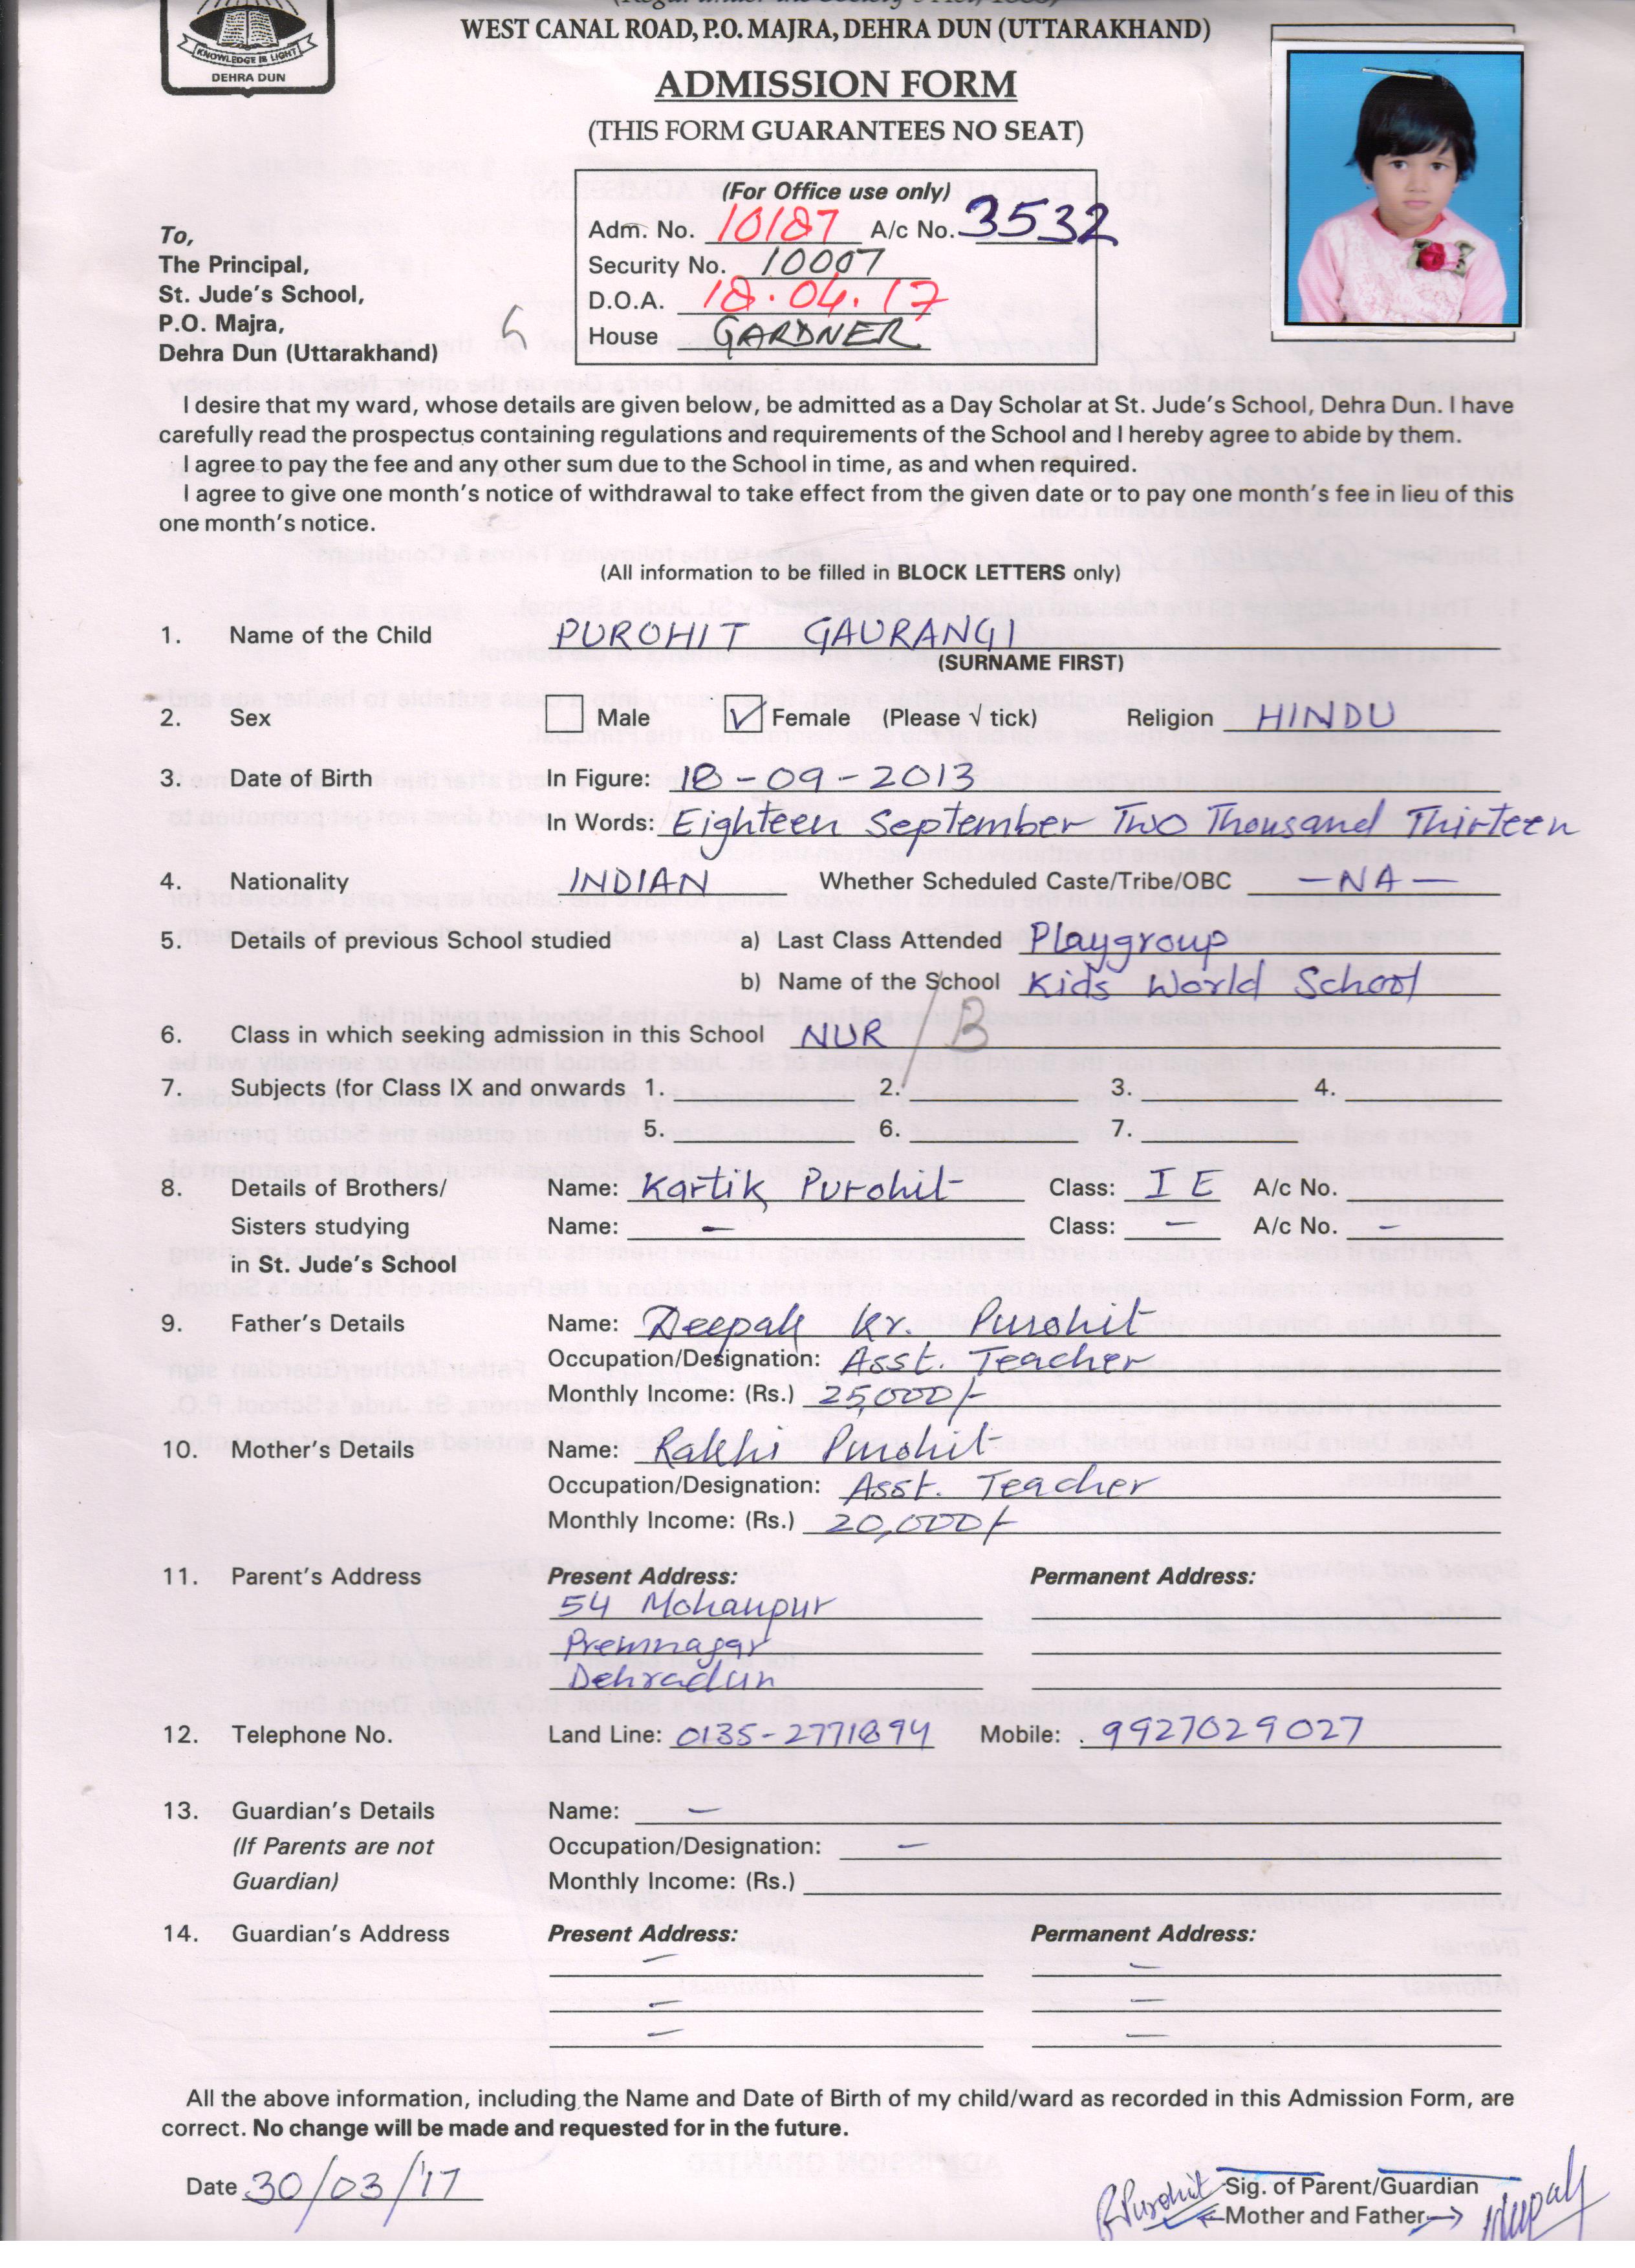 WEST CANAL ROAD, P.O. MAJRA, DEHRA DUN (UTTARAKHAND)
KNOWLEDGE IS LIGHT
DEHRA DUN
ADMISSION FORM
(THIS FORM GUARANTEES NO SEAT)
(For Office use only)
Adm. No. 10187 A/c No. 3532
Security No. 10007
D.O.A. 18.04.17
House GARDNER
To,
The Principal,
St. Jude's School,
P.O. Majra,
Dehra Dun (Uttarakhand)
I desire that my ward, whose details are given below, be admitted as a Day Scholar at St. Jude's School, Dehra Dun. I have
carefully read the prospectus containing regulations and requirements of the School and I hereby agree to abide by them.
I agree to pay the fee and any other sum due to the School in time, as and when required.
I agree to give one month's notice of withdrawal to take effect from the given date or to pay one month's fee in lieu of this
one month's notice.
(All information to be filled in BLOCK LETTERS only)
1. Name of the Child PUROHIT GAURANGI
(SURNAME FIRST)
2. Sex Male Female (Please √ tick) Religion HINDU
3. Date of Birth In Figure: 18-09-2013
In Words: Eighteen September Two Thousand Thirteen
4. Nationality INDIAN Whether Scheduled Caste/Tribe/OBC —NA—
5. Details of previous School studied a) Last Class Attended Playgroup
b) Name of the School Kids World School
6. Class in which seeking admission in this School NUR / B
7. Subjects (for Class IX and onwards 1. 2. 3. 4.
5. 6. 7.
8. Details of Brothers/ Name: Kartik Purohit Class: I E A/c No.
Sisters studying Name: — Class: — A/c No. —
in St. Jude's School
9. Father's Details Name: Deepak Kr. Purohit
Occupation/Designation: Asst. Teacher
Monthly Income: (Rs.) 25,000/-
10. Mother's Details Name: Rakhi Purohit
Occupation/Designation: Asst. Teacher
Monthly Income: (Rs.) 20,000/-
11. Parent's Address Present Address: Permanent Address:
54 Mohanpur
Premnagar
Dehradun
12. Telephone No. Land Line: 0135-2771894 Mobile: 9927029027
13. Guardian's Details Name: —
(If Parents are not Occupation/Designation: —
Guardian) Monthly Income: (Rs.)
14. Guardian's Address Present Address: Permanent Address:
— —
— —
— —
All the above information, including the Name and Date of Birth of my child/ward as recorded in this Admission Form, are
correct. No change will be made and requested for in the future.
Date 30/03/'17
RPurohit Sig. of Parent/Guardian
←Mother and Father→ Deepak